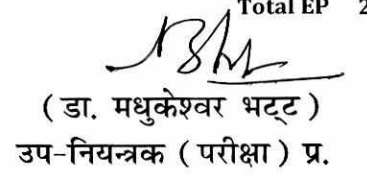 Total EP 2
( डा. मधुकेश्वर भट्ट )
उप-नियन्त्रक ( परीक्षा ) प्र.